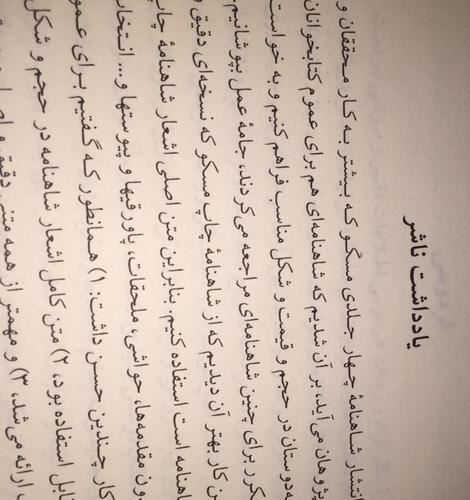 یادداشت ناشر
انتشار شاهنامهٔ چهار جلدی مسکو که بیشتر به کار محققان و
پژوهان می‌آید، بر آن شدیم که شاهنامه‌ای هم برای عموم کتابخوانان
دوستان در حجم و قیمت و شکل مناسب فراهم کنیم و به خواست
مکرر برای چنین شاهنامه‌ای مراجعه می‌کردند، جامهٔ عمل بپوشانیم.
این کار بهتر آن دیدیم که از شاهنامهٔ چاپ مسکو که نسخه‌ای دقیق و
شاهنامه است استفاده کنیم. بنابراین متن اصلی اشعار شاهنامهٔ چاپ
بدون مقدمه‌ها، حواشی، ملحقات، پاورقیها و پیوستها و... انتخاب
کار چندین حسن داشت: ۱) همانطور که گفتیم برای عموم
قابل استفاده بود، ۲) متن کامل اشعار شاهنامه در حجم و شکل
ارائه می‌شد، ۳) و مهمتر از همه متنی دقیق و اصلی